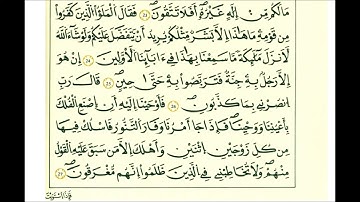 مَا لَكُم مِّنْ إِلَٰهٍ غَيْرُهُۥٓ أَفَلَا تَتَّقُونَ ٢٣ فَقَالَ ٱلْمَلَؤُا۟ ٱلَّذِينَ كَفَرُوا۟
مِن قَوْمِهِۦ مَا هَٰذَآ إِلَّا بَشَرٌ مِّثْلُكُمْ يُرِيدُ أَن يَتَفَضَّلَ عَلَيْكُمْ وَلَوْ شَآءَ ٱللَّهُ
لَأَنزَلَ مَلَٰٓئِكَةً مَّا سَمِعْنَا بِهَٰذَا فِىٓ ءَابَآئِنَا ٱلْأَوَّلِينَ ٢٤ إِنْ هُوَ
إِلَّا رَجُلٌۢ بِهِۦ جِنَّةٌ فَتَرَبَّصُوا۟ بِهِۦ حَتَّىٰ حِينٍ ٢٥ قَالَ رَبِّ
ٱنصُرْنِى بِمَا كَذَّبُونِ ٢٦ فَأَوْحَيْنَآ إِلَيْهِ أَنِ ٱصْنَعِ ٱلْفُلْكَ
بِأَعْيُنِنَا وَوَحْيِنَا فَإِذَا جَآءَ أَمْرُنَا وَفَارَ ٱلتَّنُّورُ فَٱسْلُكْ فِيهَا
مِن كُلٍّ زَوْجَيْنِ ٱثْنَيْنِ وَأَهْلَكَ إِلَّا مَن سَبَقَ عَلَيْهِ ٱلْقَوْلُ
مِنْهُمْ وَلَا تُخَٰطِبْنِى فِى ٱلَّذِينَ ظَلَمُوٓا۟ إِنَّهُم مُّغْرَقُونَ ٢٧